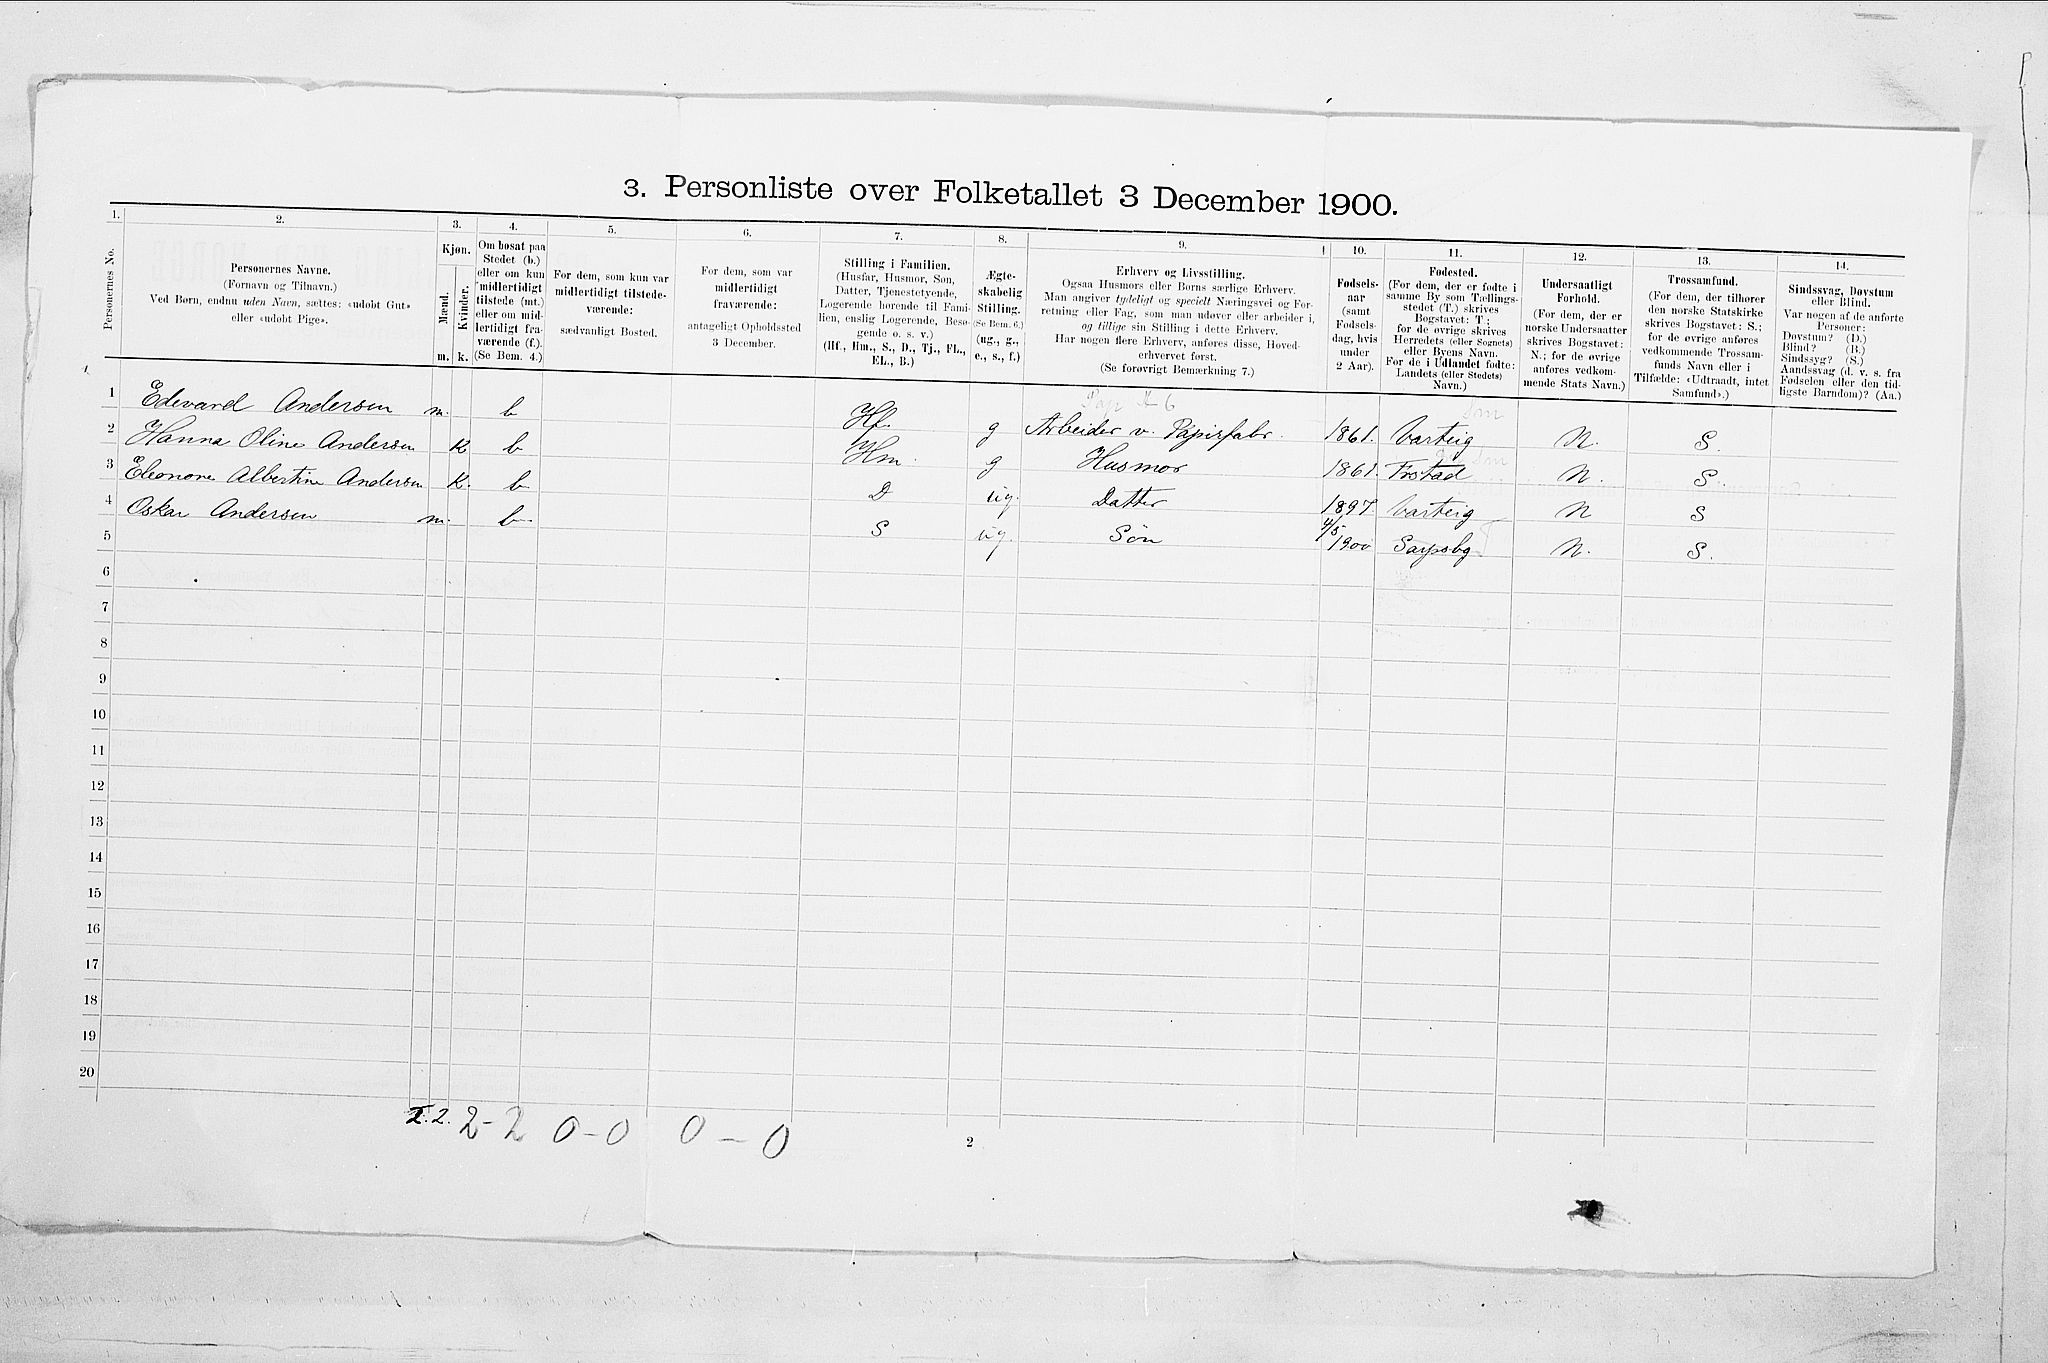 3. Personliste over Folketallet 3 December 1900.
1. 2. 3. 4. 5. 6. 7. 8. 9. 10. 11. 12. 13. 14.
Personernes No.
Personernes Navne.
(Fornavn og Tilnavn.)
Ved Børn, endnu uden Navn, sættes: «udøbt Gut»
eller «udøbt Pige».
Kjøn.
Mænd.
Kvinder.
m. k.
Om bosat paa
Stedet (b.)
eller om kun
midlertidigt
tilstede (mt.)
eller om mid-
lertidigt fra-
værende (f.).
(Se Bem. 4.)
For dem, som kun var
midlertidigt tilstede-
værende:
sædvanligt Bosted.
For dem, som var
midlertidigt
fraværende:
antageligt Opholdssted
3 December.
Stilling i Familien.
(Husfar, Husmor, Søn,
Datter, Tjenestetyende,
Logerende hørende til Fami-
lien, enslig Logerende, Besø-
gende o. s. v.)
(Hf., Hm., S., D., Tj., FL.,
EL., B.)
Ægte-
skabelig
Stilling.
(Se Bem. 6.)
(ug., g.,
e., s., f.)
Erhverv og Livsstilling.
Ogsaa Husmors eller Børns særlige Erhverv.
Man angiver tydeligt og specielt Næringsvei og For-
retning eller Fag, som man udøver eller arbeider i,
og tillige sin Stilling i dette Erhverv.
Har nogen flere Erhverv, anføres disse, Hoved-
erhvervet først.
(Se forøvrigt Bemærkning 7.)
Fødsels-
aar
(samt
Fødsels-
dag, hvis
under
2 Aar).
Fødested.
(For dem, der er fødte i
samme By som Tællings-
stedet (T.) skrives
Bogstavet: T.;
for de øvrige skrives
Herredets (eller Sognets)
eller Byens Navn.
For de i Udlandet fødte:
Landets (eller Stedets)
Navn.)
Undersaatligt
Forhold.
(For dem, der er
norske Undersaatter
skrives Bogstavet:
N.; for de øvrige
anføres vedkom-
mende Stats Navn.)
Trossamfund.
(For dem, der tilhører
den norske Statskirke
skrives Bogstavet: S.;
for de øvrige anføres
vedkommende Trossam-
funds Navn eller i
Tilfælde: «Udtraadt, intet
Samfund».)
Sindssvag, Døvstum
eller Blind.
Var nogen af de anførte
Personer:
Døvstum? (D.)
Blind? (B.)
Sindssyg? (S.)
Aandssvag (d. v. s. fra
Fødselen eller den tid-
ligste Barndom)? (Aa.)
Pap A 6
1 Edevard Andersen m. b Hf. g Arbeider v. Papirfabr. 1861. Varteig N. S.
2 Hanna Oline Andersen K b Hm. g Husmor 1861. Frstad N. S.
3 Eleonore Albertine Andersen K. b D ug. Datter 1897. Varteig N S
4 Oskar Andersen m. b. S ug. Søn 4/5 1900 Sarpsbg N. S.
5
6
7
8
9
10
11
12
13
14
15
16
17
18
19
20
2. 2. 2-2 0-0 0-0
2